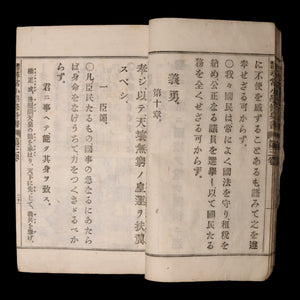 に不便を感ずることあるも謹みて之を遵
奉せざる可からず。
〇我々國民は常によく國法を守り租税を
納め公正なる議員を選擧し以て國民たる
務を全くせざる可からず。
義勇。
第十章。
孝ジ以テ天壤無窮ノ皇運ヲ扶翼
スベシ。
一 臣道。
〇凡臣民たるもの國事の急なるにあたら
ば身命をなげうちて力をつくさざるべか
らず。
君ニ事ヘテ能ク其身ヲ致ス。